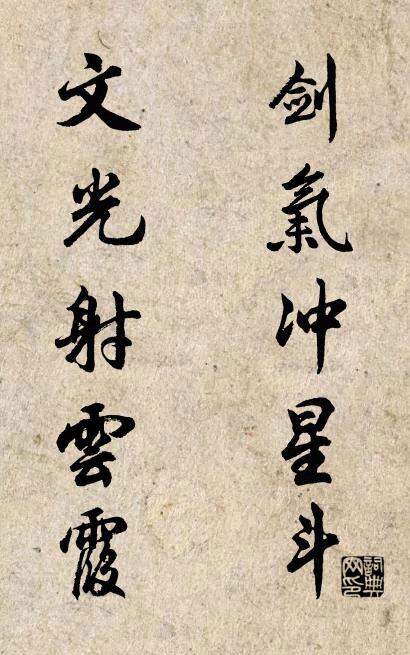 剑氣冲星斗
文光射雲霞
詞典
网印